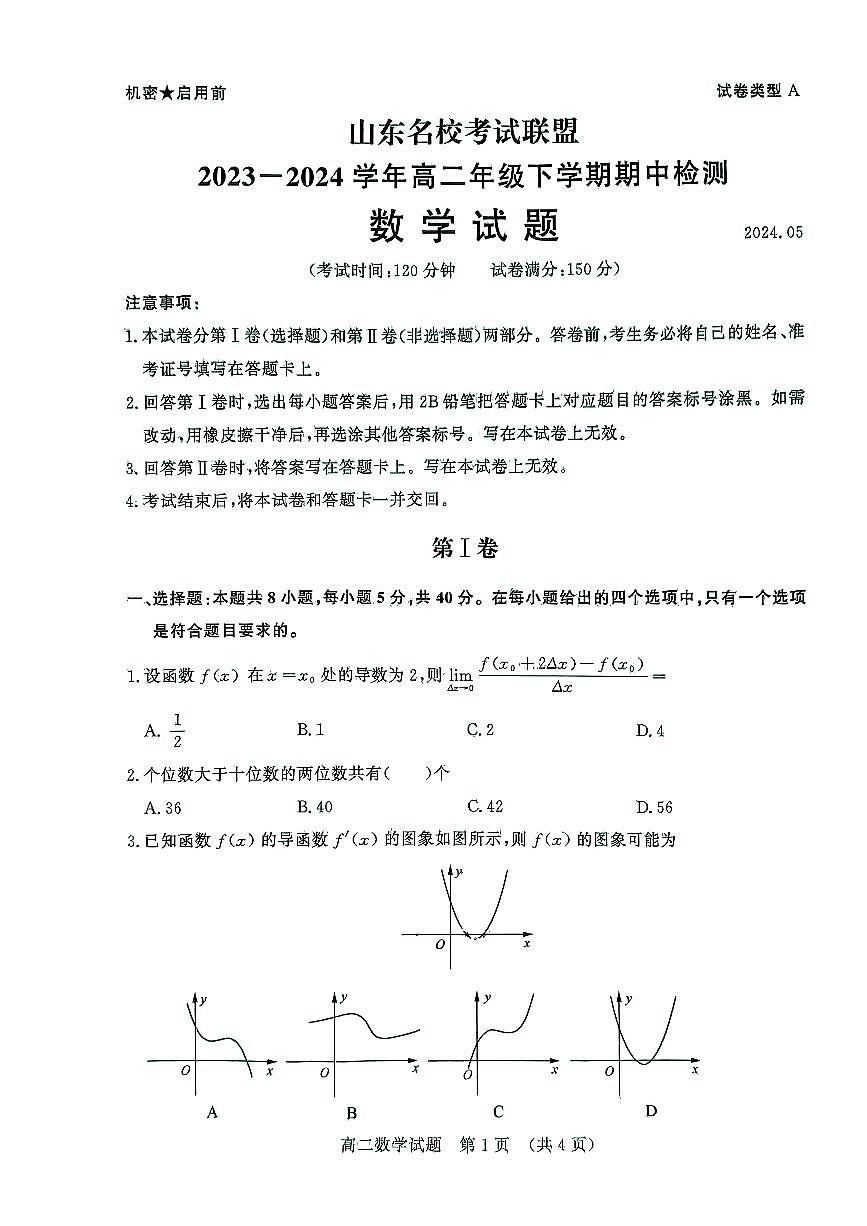 机密★启用前
试卷类型 A
山东名校考试联盟
2023—2024 学年高二年级下学期期中检测
数学试题
2024.05
(考试时间:120 分钟 试卷满分:150 分)
注意事项:
1.本试卷分第Ⅰ卷(选择题)和第Ⅱ卷(非选择题)两部分。答卷前,考生务必将自己的姓名、准
考证号填写在答题卡上。
2.回答第Ⅰ卷时,选出每小题答案后,用 2B 铅笔把答题卡上对应题目的答案标号涂黑。如需
改动,用橡皮擦干净后,再选涂其他答案标号。写在本试卷上无效。
3.回答第Ⅱ卷时,将答案写在答题卡上。写在本试卷上无效。
4.考试结束后,将本试卷和答题卡一并交回。
第Ⅰ卷
一、选择题:本题共 8 小题,每小题 5 分,共 40 分。在每小题给出的四个选项中,只有一个选项
是符合题目要求的。
1.设函数 f(x) 在 x=x₀ 处的导数为 2,则 lim Δx→0 f(x₀+2Δx)-f(x₀) / Δx =
A. 1/2 B. 1 C. 2 D. 4
2.个位数大于十位数的两位数共有( )个
A. 36 B. 40 C. 42 D. 56
3.已知函数 f(x) 的导函数 f′(x) 的图象如图所示,则 f(x) 的图象可能为
y
O x
y y y y
O x O x O x O x
A B C D
高二数学试题 第 1 页 (共 4 页)